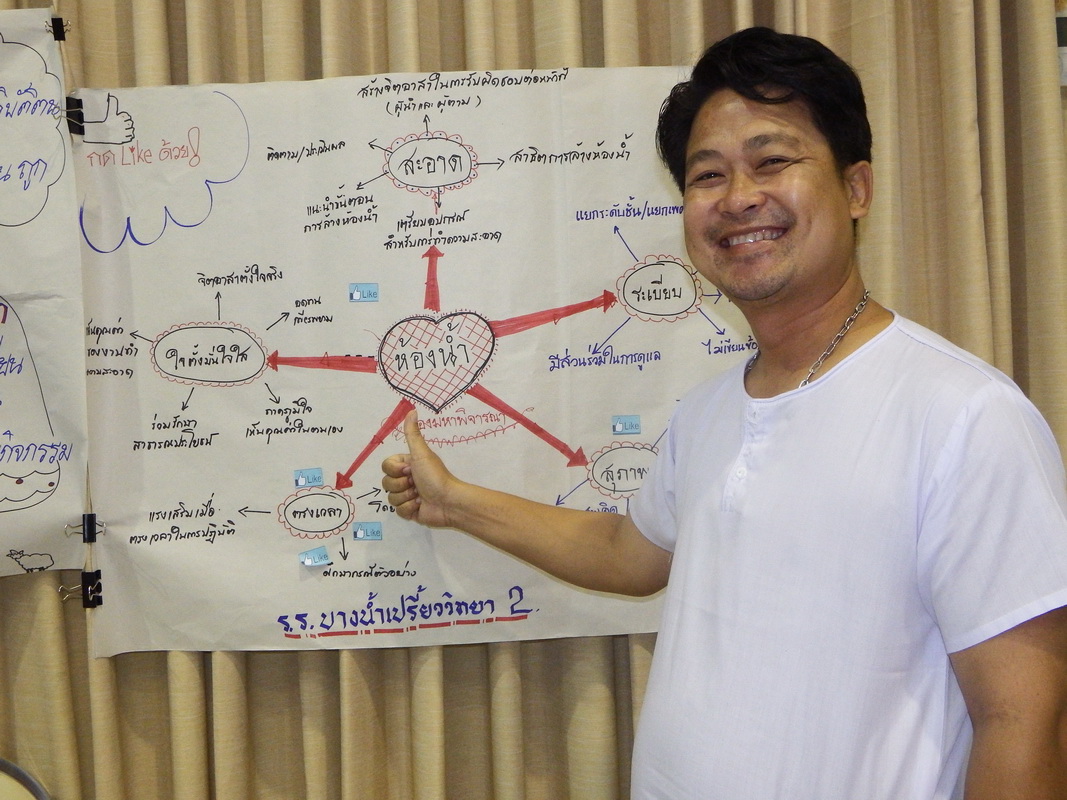 ถูก
กิจกรรม
กด Like ด้วย!
สร้างจิตอาสาในการรับผิดชอบต่อหน้าที่
(ผู้นำและผู้ตาม)
ติดตาม/ประเมินผล
สะอาด
สาธิตการล้างห้องน้ำ
แนะนำขั้นตอน
การล้างห้องน้ำ
เตรียมอุปกรณ์
สำหรับการทำความสะอาด
แยกระดับชั้น/แยกเพ
ระเบียบ
มีส่วนร่วมในการดูแล
ไม่เขียนข้อ
จิตอาสาตั้งใจจริง
อดทน
เพียรพยาม
Like
ห้องน้ำ
ใจตั้งมั่นใจใส
ร่วมรักษา
สาธารณประโยชน์
ภาคภูมิใจ
เห็นคุณค่าในตนเอง
ห้องมหาพิจารณา
Like
สุภาพ
Like
ตรงเวลา
แรงเสริมเมื่อ
ตรงเวลาในการปฏิบัติ
โดย
Like
Like
ร.ร. บางน้ำเปรี้ยววิทยา 2